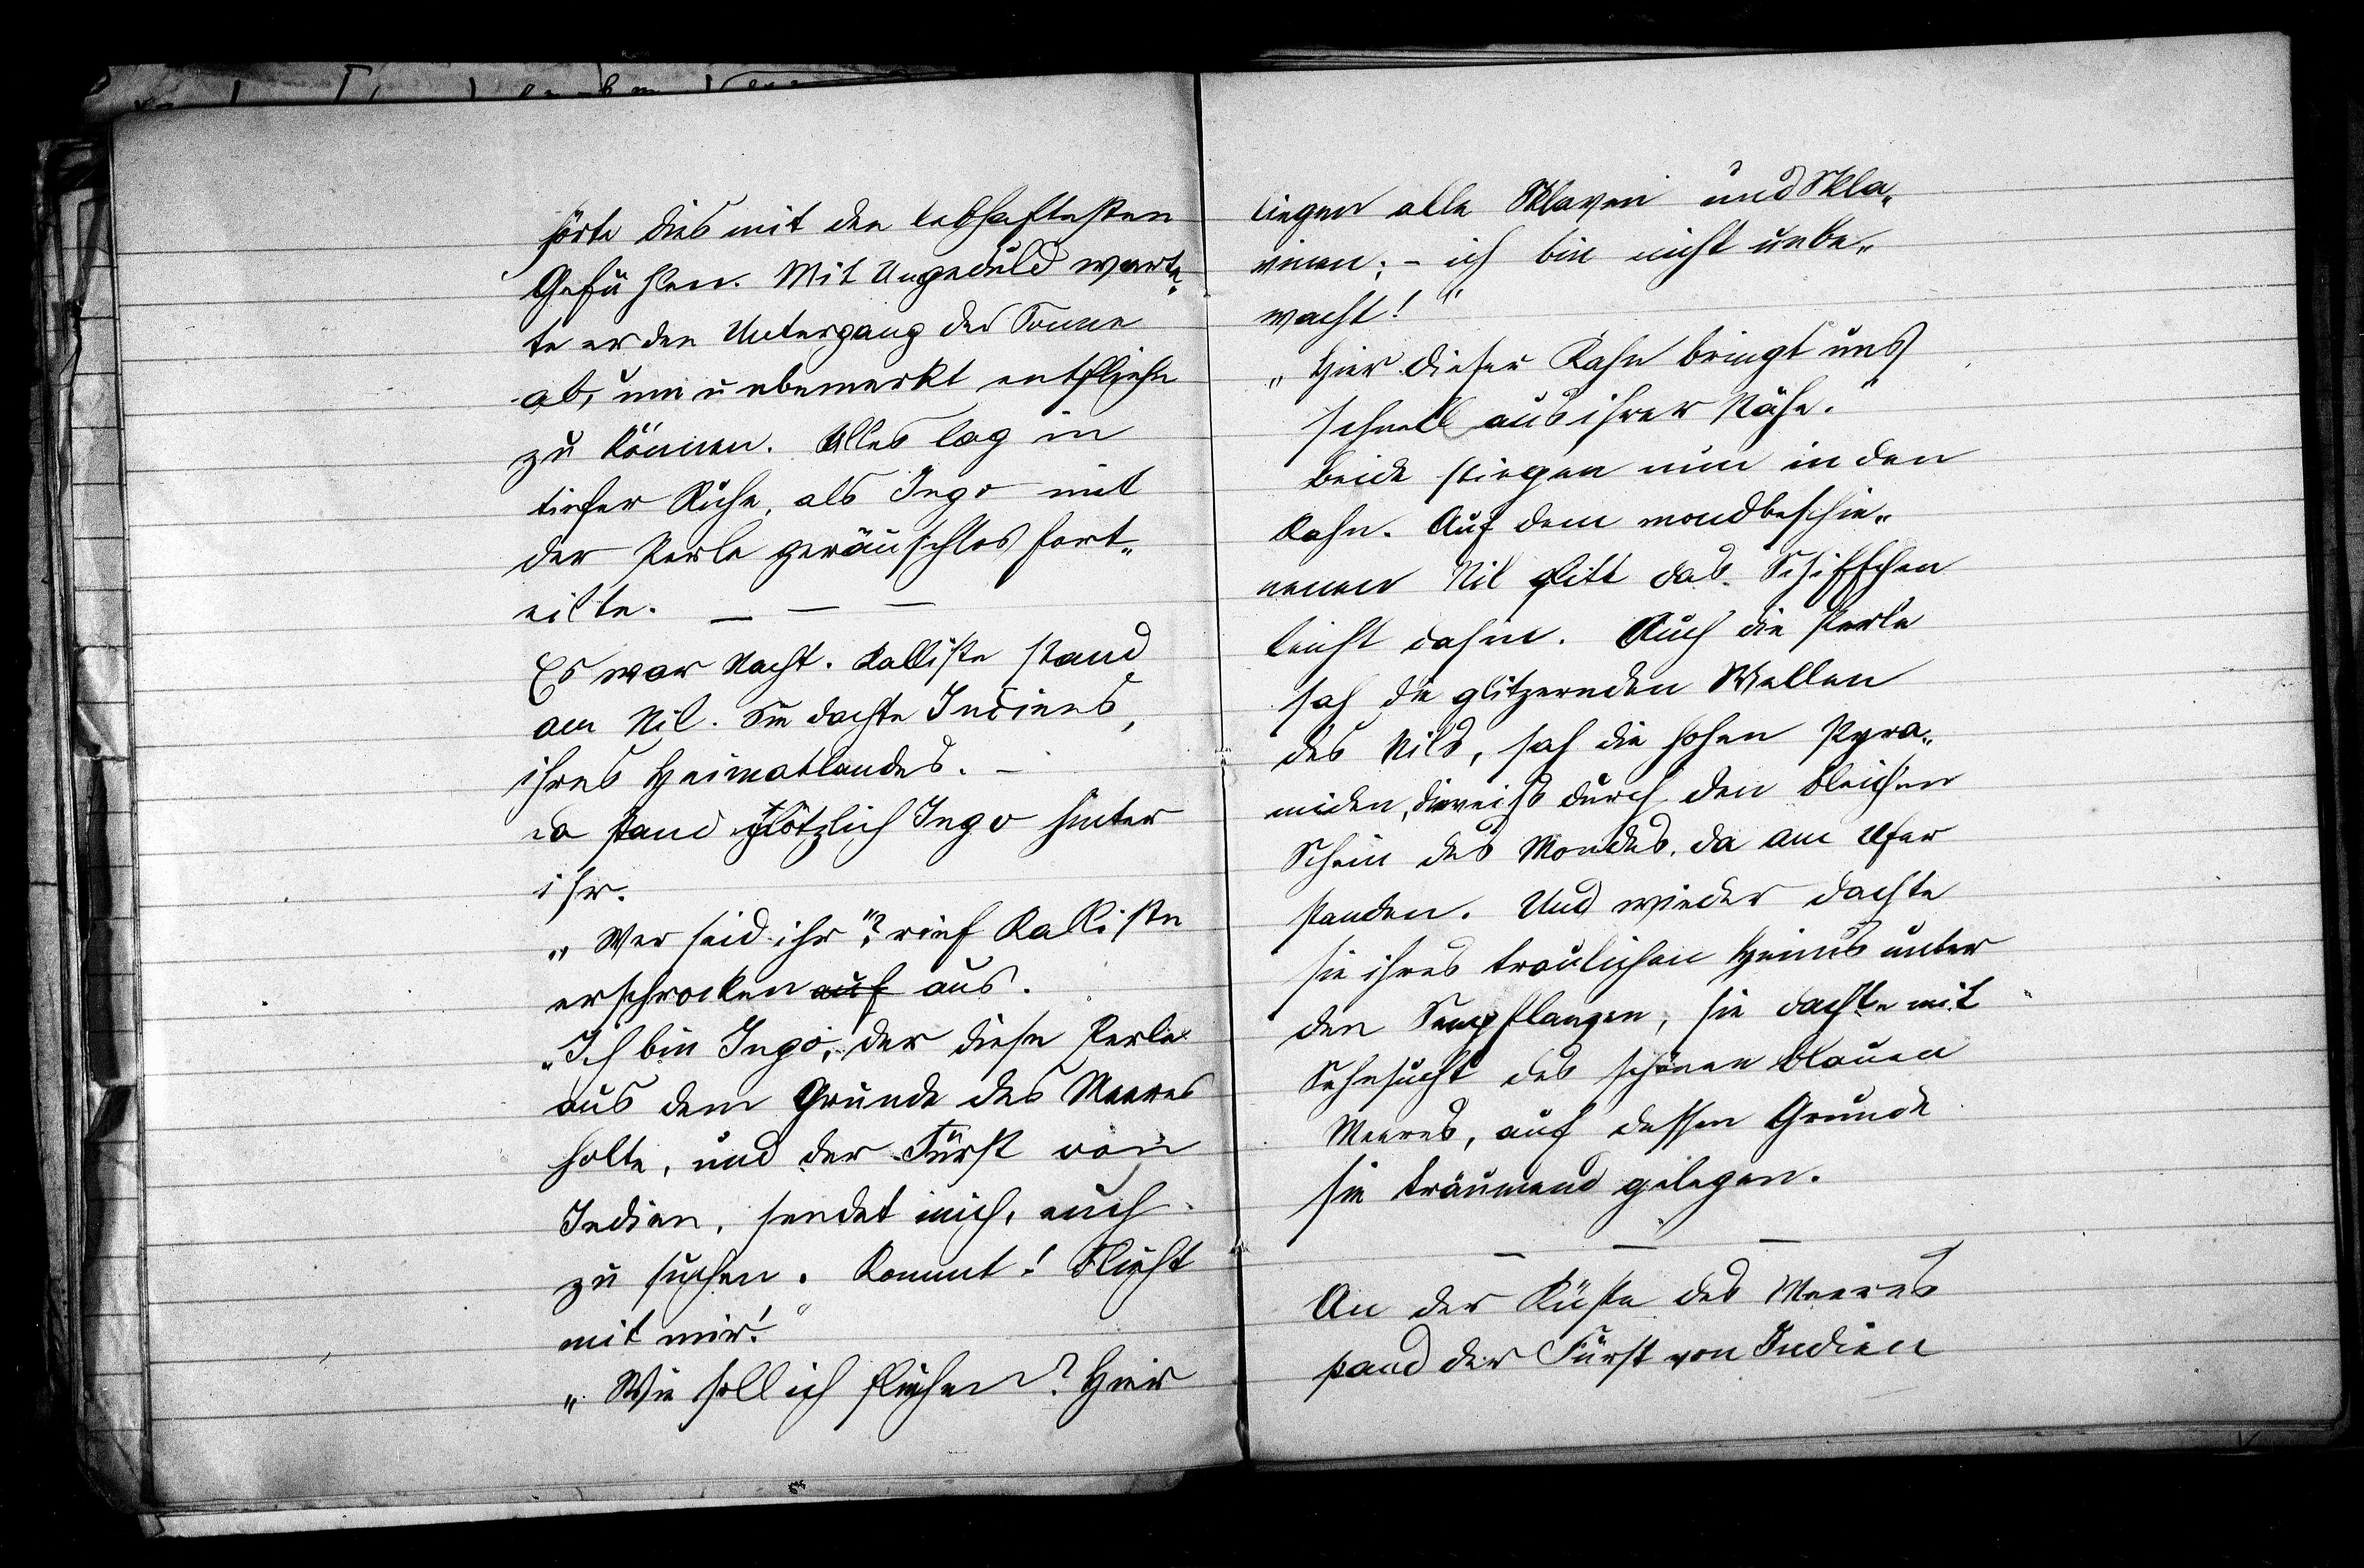 hörte dies mit den lebhaftesten
Gefühlen. Mit Ungeduld warte„
te er den Untergang der Sonne
ab, um unbemerkt entfliehn
zu können. Alles lag in
tiefer Ruhe, als Ingo mit
der Perle geräuschlos fort„
eilte. — — —
Es war Nacht. Kalliste stand
am Nil. Sie dachte Indiens,
ihres Heimatlandes. –
Da stand plötzlich Ingo hinter
ihr.
„Wer seid ihr"? rief Kalliste
erschrocken auf aus.
„Ich bin Ingo, der diese Perle
aus dem Grunde des Meeres
holte, und der Fürst von
Indien, sendet mich, euch
zu suchen. Kommt! Flieht
mit mir!"
„Wie soll ich fliehen? Hier
liegen alle Sklaven und Skla„
vinen; – ich bin nicht unbe„
wacht!"
„Hier dieser Kahn bringt uns
schnell aus ihrer Nähe."
Beide stiegen nun in den
Kahn. Auf dem mondbeschie„
nenen Nil glitt das Schiffchen
leicht dahin. Auch die Perle
sah die glitzernden Wellen
des Nils, sah die hohen Pyra„
miden, die weiß durch den bleichen
Schein des Mondes, da am Ufer
standen. Und wieder dachte
sie ihres traulichen Heims unter
den Seepflanzen, sie dachte mit
Sehnsucht des schönen blauen
Meeres, auf dessen Grunde
sie träumend gelegen.
— — —
An der Küste des Meeres
stand der Fürst von Indien